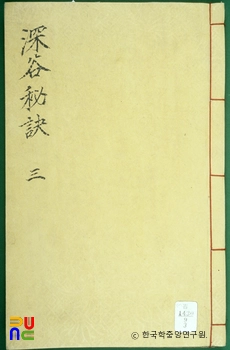 深谷秘訣
三
ⓒ 한국학중앙연구원.